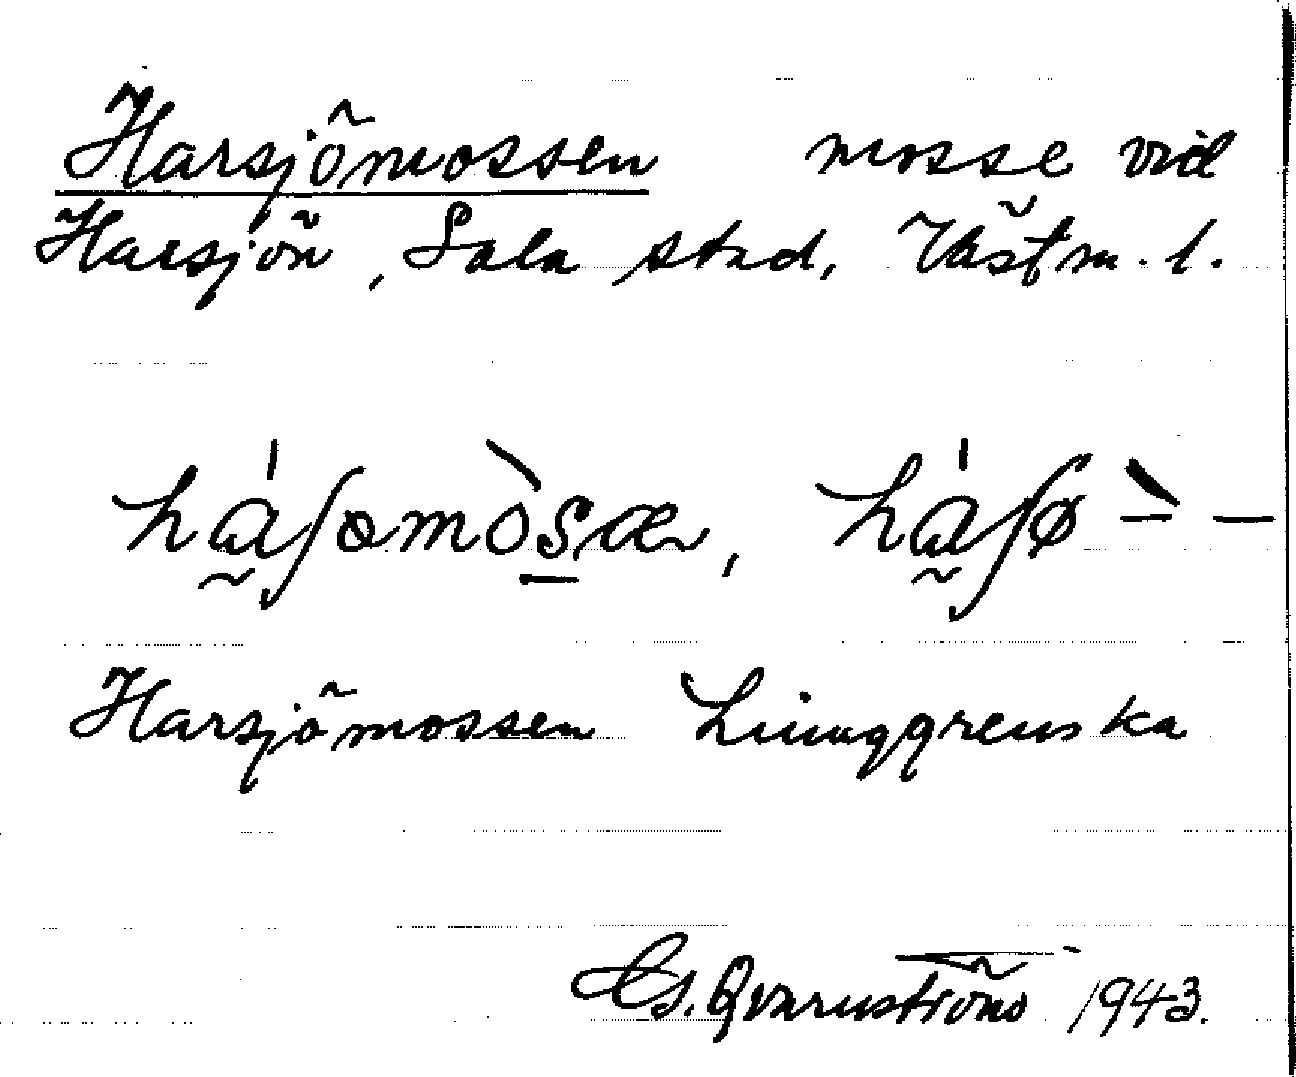 Harsjömossen mosse vid
Harsjön, Sala stad, Västm. l.
Harsjömossen Ljunggrenska
Cs. Qvarnström 1943.